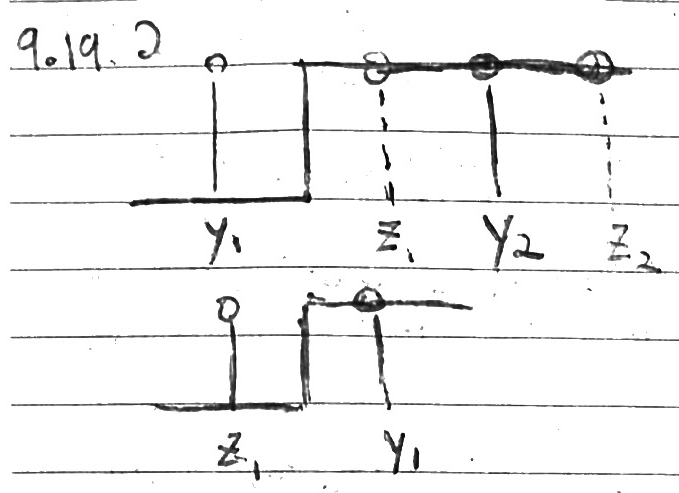 9.19.2
y₁ z₁ y₂ z₂
z₁ y₁